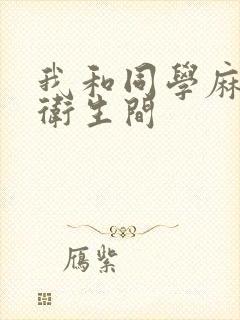 我和同學麻
衛生間
鴈紫